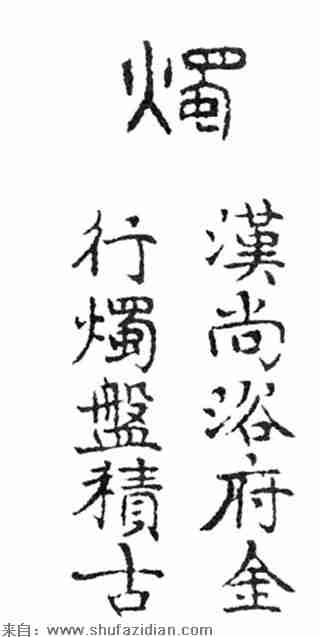 燭
漢尚浴府金
行燭盤積古
来自: www.shufazidian.com